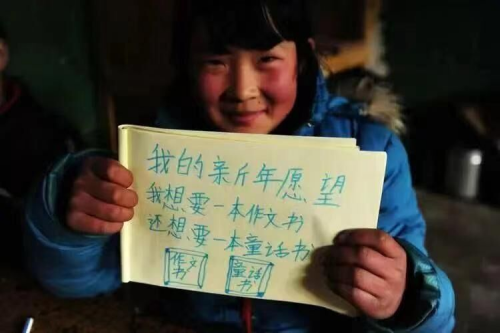 我的亲斤年愿望
我想要一本作文书
还想要一本童话书
作文书
童话书